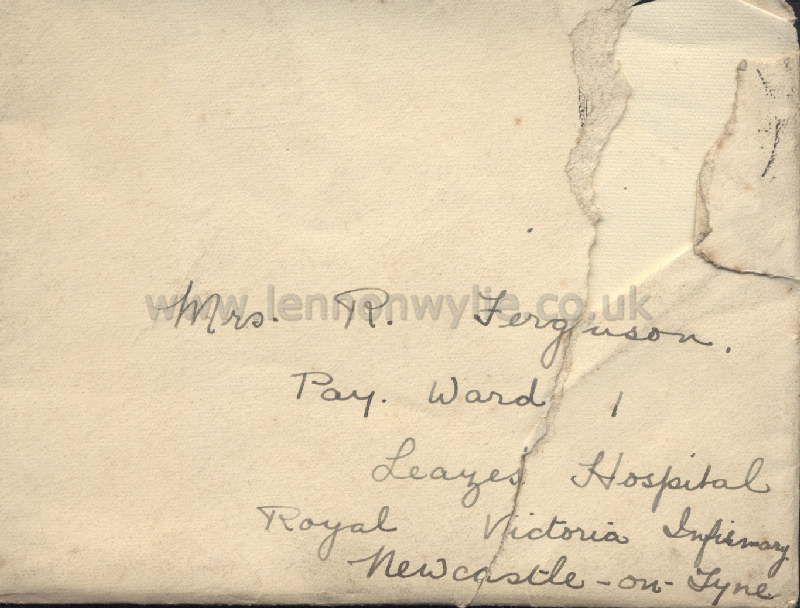 www.lennonwylie.co.uk
Mrs. R. Ferguson.
Pay. Ward 1
Leazes Hospital
Royal Victoria Infirmary
Newcastle-on-Tyne